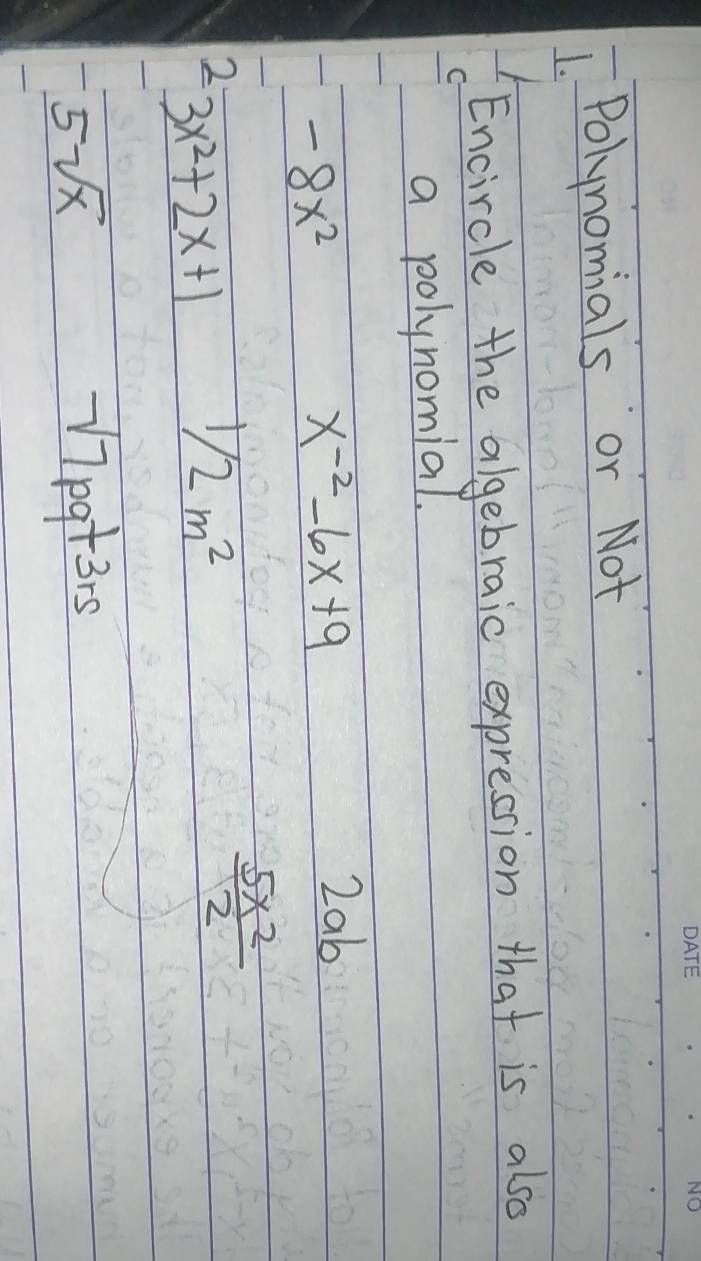 DATE NO
I. Polynomials or Not
Encircle the algebraic expression that is also
a polynomial.
-8x² x⁻² - 6x + 9 2ab
3x² + 2x + 1 1/2 m² 5x²/2
5√x √7pq + 3rs